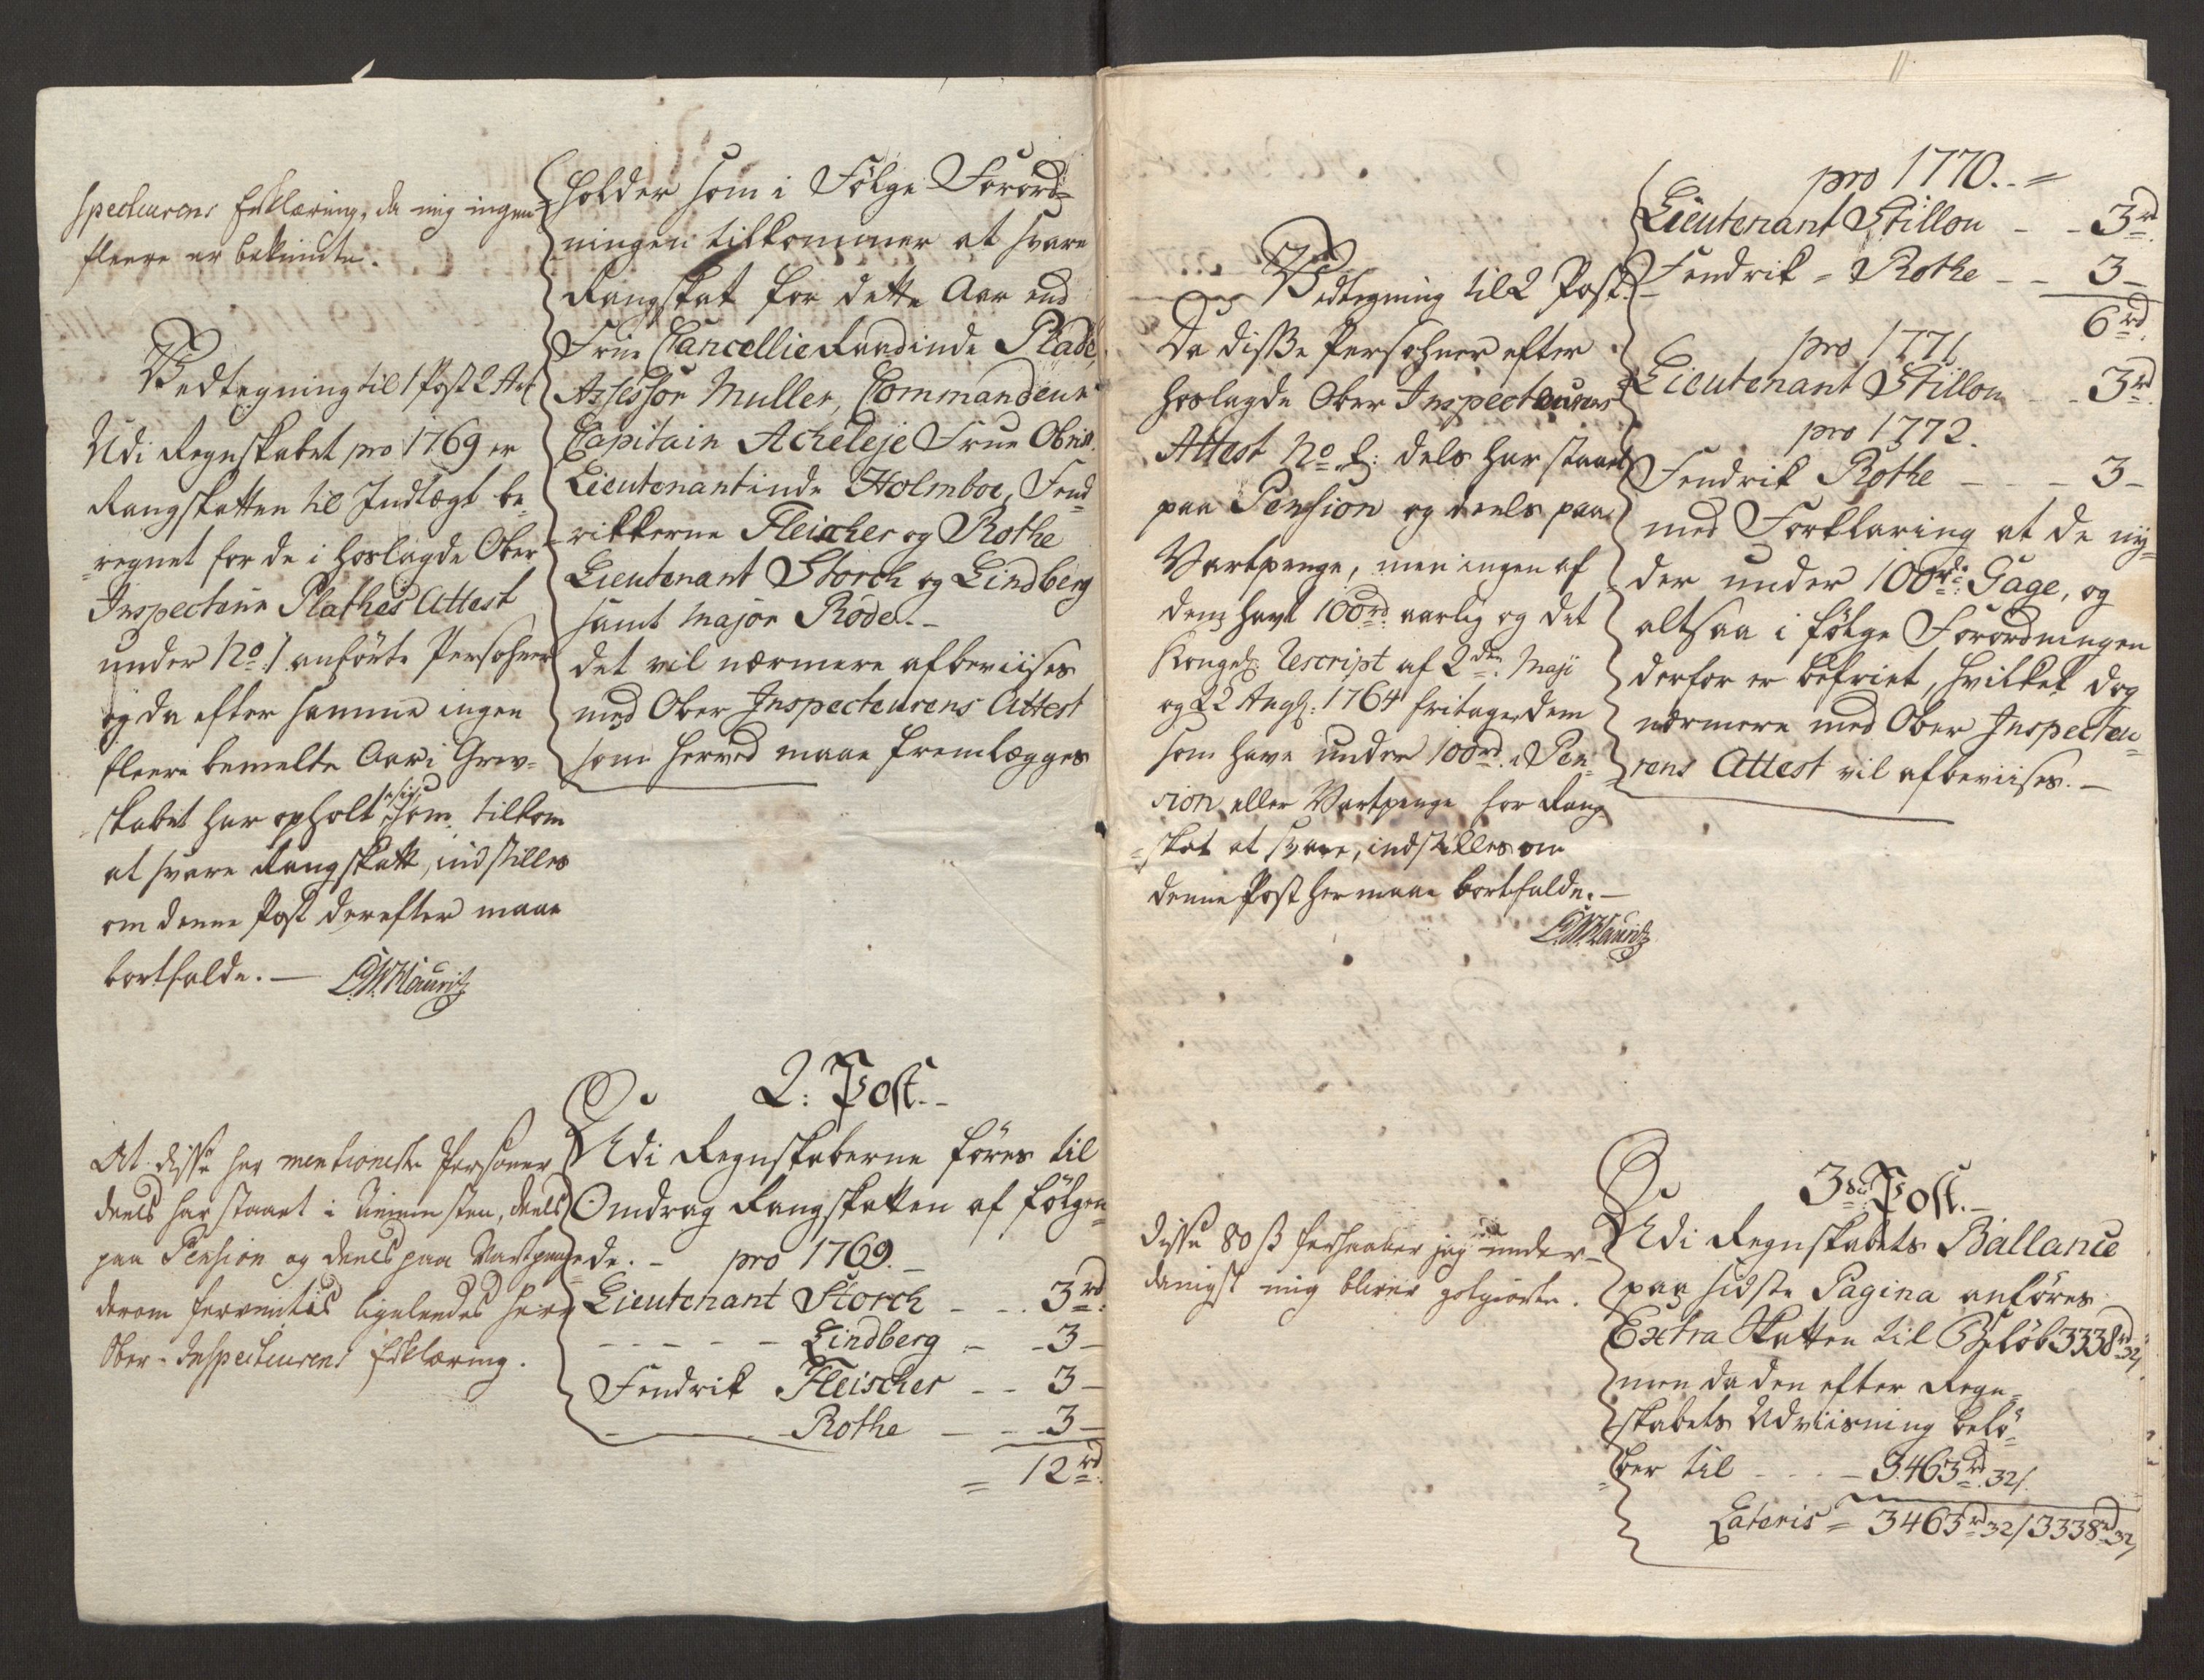 specteurens Erklæring, da mig ingen
fleere er bekiendte.
Vedtegning til 1 Post 2 Art
Udi Regnskabet pro 1769 er
Rangskatten til Indtægt be-
regnet for de i hoslagde Ober
Inspecteur Plathes Attest
under No: 1 anførte Persohner
og da efter samme ingen
fleere bemelte Aar i Grev-
skabet har opholt sig som tilkom
at svare Rangskatt, indstilles
om denne Post derefter maae
bortfalde. —
At disse her mentioneerte Personer
deels har staaet i Tienesten, deels
paa Pension og deels paa Vartpenge
derom ligeledes herr
Ober-Inspecteurens Erklæring.
holder som i Følge Forord-
ningen tilkommer at svare
Rangskat for dette Aar end
Frue Cancellie Raadinde Plade,
Assessor Muller, Commandeur
Capitain Acheleje Frue Obrist
Lieutenantinde Holmboe, Fend-
rikkerne Fleischer og Rothe
Lieutenant Storch og Lindberg
samt Major Rode. -
det vil nærmere afbeviises
med Ober Inspecteurens Attest
som herved maae fremlægges
2: Post. -
Udi Regnskaberne føres til
Omdrag Rangskatten af følgen-
de. - pro 1769. -
Lieutenant Storch - - 3 rd:
- - - - Lindberg - - 3 -
Fendrik Fleischer - - 3 -
- - - - Rothe - - 3 -
= 12 rd.
Vedtegning til 2 Post. -
Da disse Persohner efter
hoslagde Ober Inspecteurens
Attest No 2: dels har staaet
paa Pension og deels paa
Vartpenge, men ingen af
dem havt 100 rd aarlig og det
Kongel: Rescript af 2den Maji
og 22 Aug: 1764 fritager dem
som have under 100 rd. i Pen-
sion eller Vartpenge for Rang
skat at svare, indstilles om
denne Post her maae bortfalde. -
disse 80 s forhaaber jeg under-
danigst mig bliver godgiordte.
pro 1770. - =
Lieutenant Stillou - - 3 rd
Fendrik = Rothe - - 3 -
6 rd.
pro 1771
Lieutenant Stillou - - 3 rd
pro 1772.
Fendrik Rothe - - - 3 -
med Forklaring at de ny-
der under 100 rd: Gage, og
altsaa i følge Forordningen
derfor er befriet, hvilket dog
nærmere med Ober Inspecteu-
rens Attest vil afbeviises. -
3de Post. -
Udi Regnskabets Ballance
paa sidste Pagina anføres
Extra Skatten til Beløb 3338 rd 32 s
men da den efter Regn-
skabets Udviisning belø-
ber til - - - 3463 rd 32 s.
Lateris = 3463 rd 32 s 3338 rd 32 s